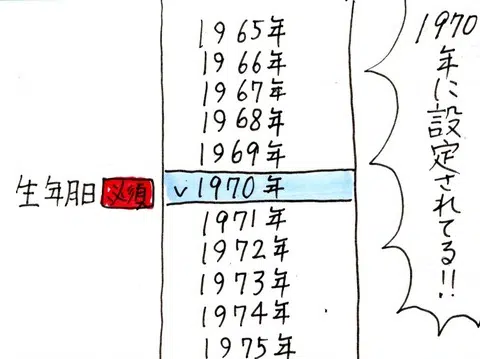 1965年
1966年
1967年
1968年
1969年
生年月日 必須 ✓1970年
1971年
1972年
1973年
1974年
1975年
1970
年に設定されてる!!